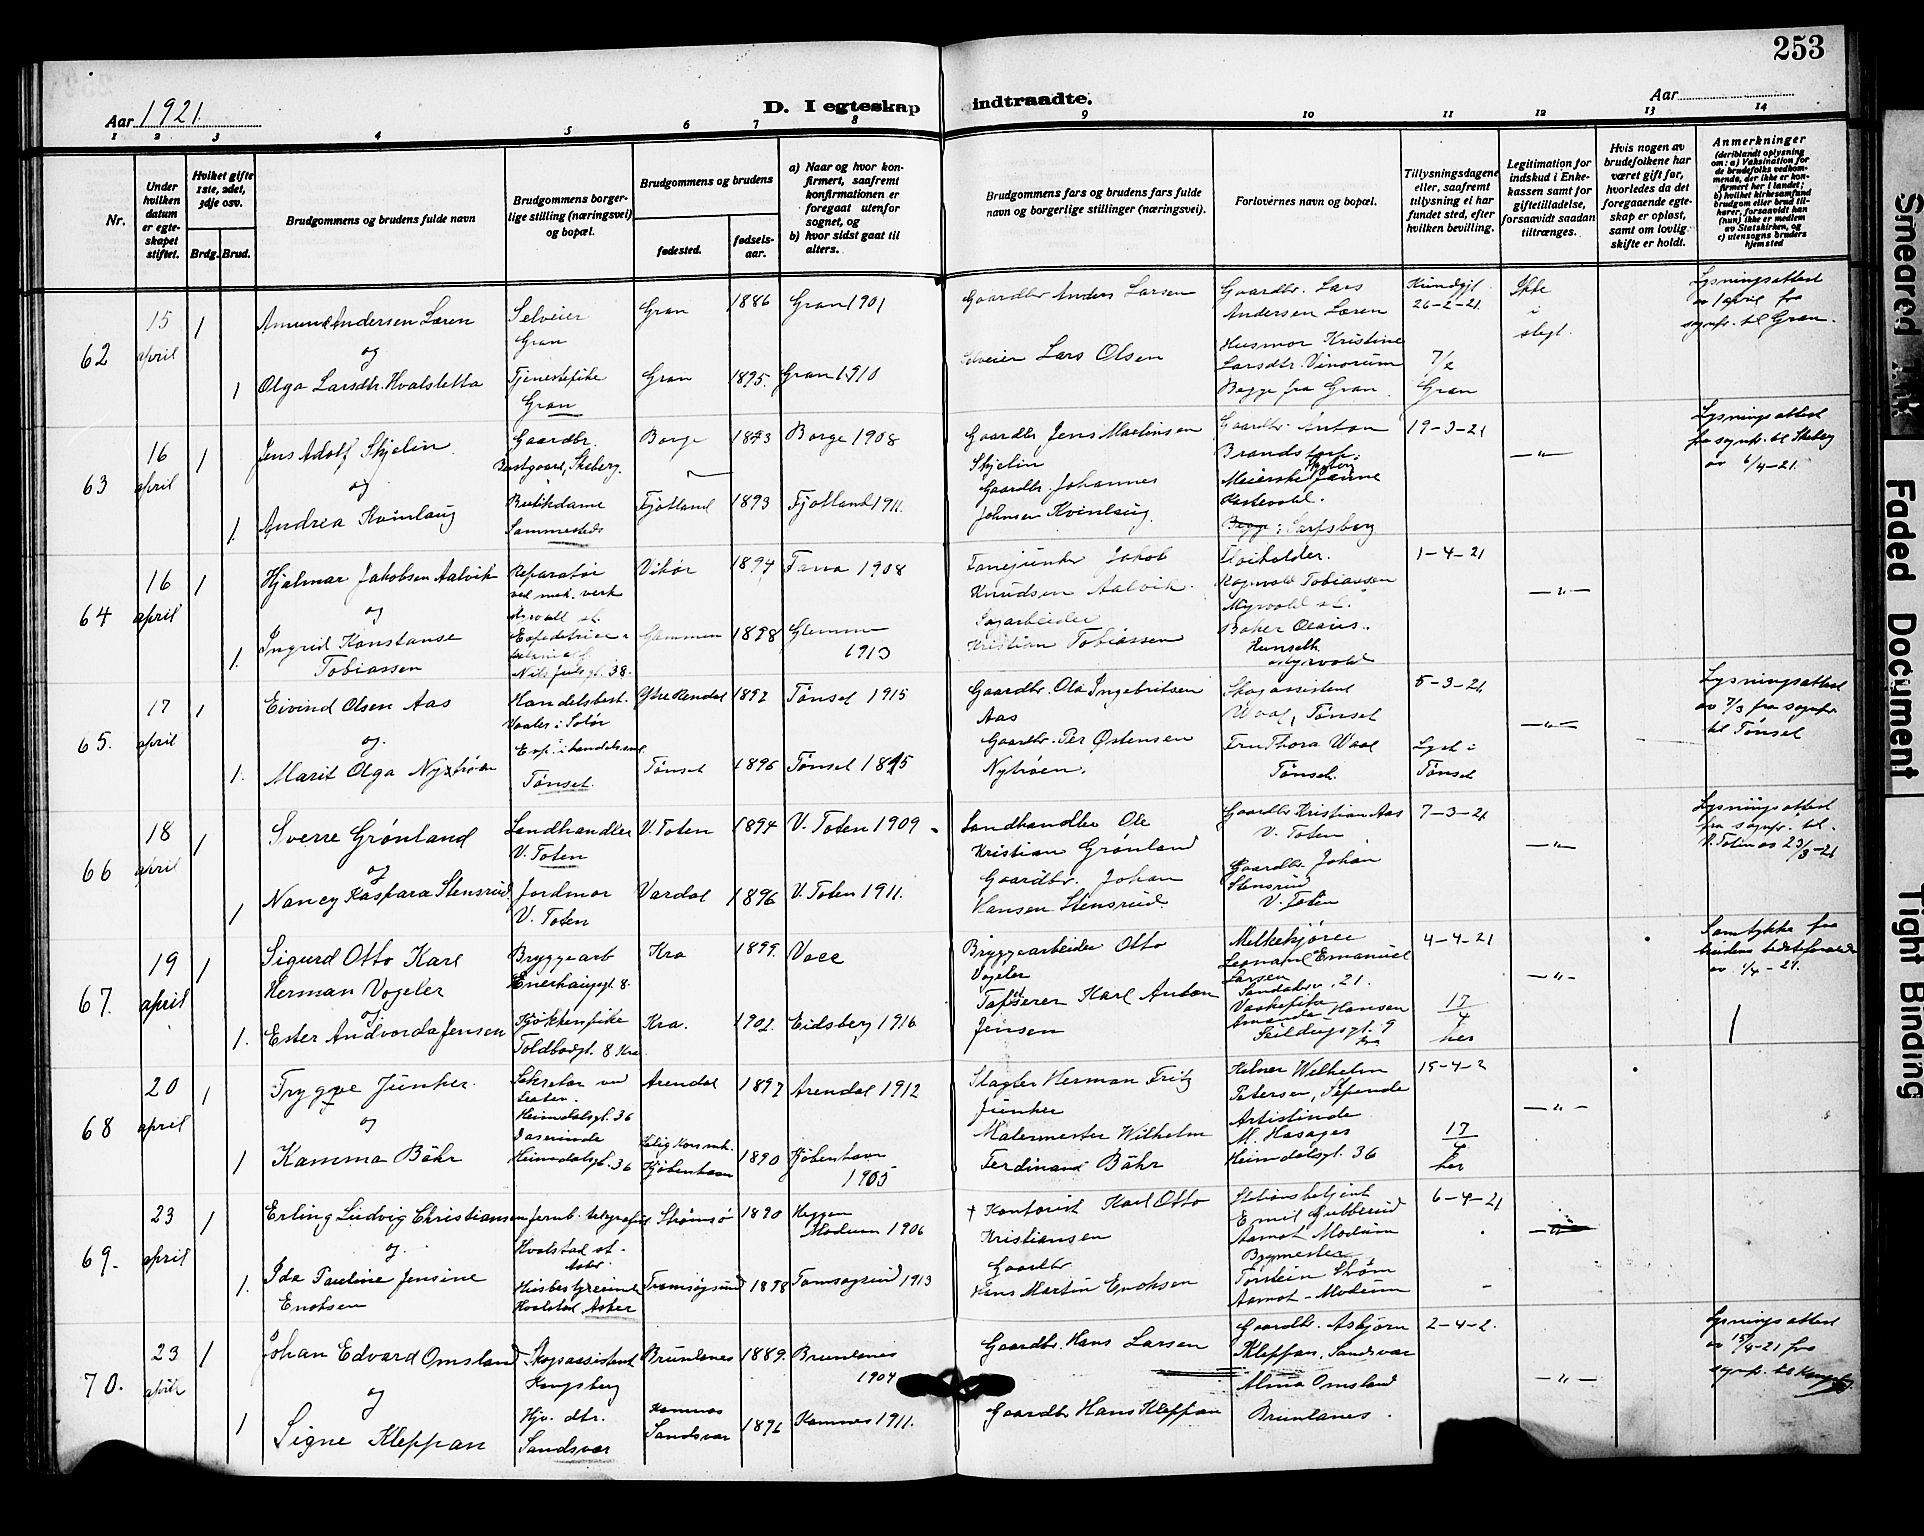 253
Aar 1921.
D. I egteskap indtraadte.
Aar
1 2 3 4 5 6 7 8 9 10 11 12 13 14
Nr.
Under hvilken datum er egteskapet stiftet.
Hvilket gifte 1ste, 2det, 3dje osv.
Brdg. Brud.
Brudgommens og brudens fulde navn
Brudgommens borgerlige stilling (næringsvei) og bopæl.
Brudgommens og brudens
fødested.
fødsels-aar.
a) Naar og hvor konfirmert, saafremt konfirmationen er foregaat utenfor sognet, og
b) hvor sidst gaat til alters.
Brudgommens fars og brudens fars fulde navn og borgerlige stillinger (næringsvei).
Forlovernes navn og bopæl.
Tillysningsdagene eller, saafremt tillysning ei har fundet sted, efter hvilken bevilling.
Legitimation for indskud i Enkekassen samt for giftetilladelse, forsaavidt saadan tiltrænges.
Hvis nogen av brudefolkene har været gift før, hvorledes da det foregaaende egteskap er opløst, samt om lovlig skifte er holdt.
Anmerkninger
(deriblandt oplysning om: a) Vaksination for de brudefolks vedkommende, der ikke er konfirmert her i landet; b) hvilket kirkesamfund brudgom eller brud tilhører, forsaavidt han (hun) ikke er medlem av Statskirken, og c) utensogns bruders hjemsted
62
15 april
1
Amund Andersen Læren
og
1
Olga Larsdtr. Hvalsletta
Selveier
Gran
Tjenestepike
Gran
Gran 1886 Gran 1901
Gran 1895. Gran 1910
Gaardbr Anders Larsen
Selveier Lars Olsen
Gaardbr. Lars
Andersen Læren
Husmor Kristine
Larsdtr. Vinorum
Begge fra Gran
26-2-21
Gran
Ikke
i
slegt.
Lysningsattest
av 1 april fra
sognpr. til Gran.
63
16 april
1
Jens Adolf Skjelin
og
1.
Andrea Kvinlaug
Gaardbr.
Skeberg.
Butikdame
Sammesteds
Borge Borge 1908
Fjotland 1893 Fjotland 1911.
Gaardbr Jens Martinsen
Skjelin
Gaardbr. Johannes
Johnsen Kvinlaug.
Gaardbr. Anton
Sarpsborg
19-3-21
—"—
Lysningsattest
fra sognpr. til Skeberg
av 6/4-21.
64
16 april
1
Hjalmar Jakobsen Aalvik
og
1.
Ingrid Konstanse
Tobiassen
Reparatør
ved mek. verk
Vikør 1894 Fana 1908
1898 Glemmen
1913
Fanejunker Jakob
Knudsen Aalvik.
Sagarbeider
Kristian Tobiassen
Ragnvald Tobiassen
Baker Olaus.
1-4-21
—"—
65.
17 april
1
Eivind Olsen Aas
og.
1.
Marit Olga Nytrøen
Handelsbest.
Vaaler i Solør
Exp. i handelsend
Tønset.
Ytre Rendal 1892 Tønset 1915
Tønset 1896 Tønset
Gaardbr. Ola Ingebritsen
Aas
Gaardbr. Per Østensen
Nytrøen.
Skogassistent
Waal, Tønset
Fru Thora Waal
Tønset.
5-3-21
Lyst i
Tønset
—"—
Lysningsattest
av 7/3 fra sognpr
til Tønset
66
18 april
1
Sverre Grønland
og
1
Nancy Kaspara Stensrud
Landhandler
V. Toten
Jordmor
V. Toten
V. Toten 1894 V. Toten 1909
Vardal 1896 V. Toten 1911.
Landhandler Ole
Kristian Grønland
Gaardbr. Johan
Hansen Stensrud.
Gaardbr Kristian Aas
V. Toten
Gaardbr. Johan
Stensrud
V. Toten
7-3-21
—"—
Lysningsattest
fra sognpr. til
V. Toten av 23/3-21
67.
19 april
1
Sigurd Otto Karl
Herman Vogeler
og
1.
Ester Andvorda Jensen
Bryggearb
Enerhauggt. 8.
Kjøkkenpike
Toldbodgt. 8 Kra
Kra 1899.
Kra. 1902. Eidsberg 1916
Bryggearbeider Otto
Vogeler
Tapserer Karl Anton
Jensen
Melkekjører
Leonard Emanuel
Larsen
Vaskepike
Amanda Hansen
4-4-21
17/4
her
—"—
Samtykke fra
av 1/4-21.
68
20 april
1
Trygve Junker.
og
1
Kamma Bähr
Sekretær ved
teater.
Heimdalsgt. 36
Danserinde
Heimdalsgt. 36
Arendal 1897 Arendal 1912
Kjøbenhavn 1890 Kjøbenhavn
1905
Slagter Herman Fritz
Junker
Malermester Wilhelm
Ferdinand Bähr
Kelner Wilhelm
Petersen, Stpende
Artistinde
M. Hasager
Heimdalsgt. 36
15-4-2
17/4
her
—"—
69.
23 april
1
Erling Ludvig Christiansen
og.
1.
Ida Pauline Jensine
Enoksen
Jernb. telegrafist
Hvalstad st.
Asker
Husbestyrerinde
Hvalstad Asker
Strømsø 1890 Heggen
Modum 1906
Tromsøysund 1898 Tromsøysund 1913
† Kontorist Karl Otto
Kristiansen
Gaardbr
Hans Martin Enoksen
Stationsbetjent
Emil Gubberud
Aamot Modum
Bygmester
Torstein Strøm
Aamot - Modum
6-4-21
—"—
70.
23 april
1
Johan Edvard Omsland
og
1
Signe Kleppan
Skogassistent
Kongsberg
Hjv. dtr.
Sandsvær
Brunlanes 1889. Brunlanes
1904
Komnes
Sandsvær 1896 Komnes 1911.
Gaardbr. Hans Larsen
Gaardbr Hans Kleppan
Gaardbr. Asbjørn
Kleppan, Sandsvær
Alma Omsland
Brunlanes.
2-4-2.
—"—
Lysningsattest
av 15/4-21 fra
sognpr. til Kongsberg
Smeared Ink
Faded Document
Tight Binding